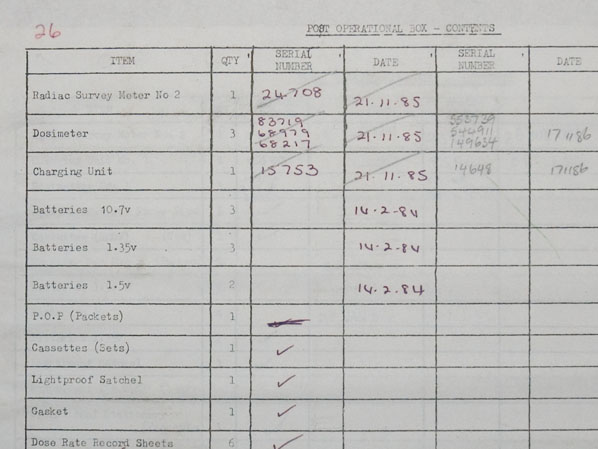 26
POST OPERATIONAL BOX - CONTENTS
ITEM QTY SERIAL NUMBER DATE SERIAL NUMBER DATE
Radiac Survey Meter No 2 1 24708 21.11.85
Dosimeter 3 83719 68979 68217 21.11.85 553739 544911 149634 171186
Charging Unit 1 15753 21.11.85 14648 171186
Batteries 10.7v 3 14.2-84
Batteries 1.35v 3 14-2-84
Batteries 1.5v 2 14.2.84
P.O.P (Packets) 1
Cassettes (Sets) 1 ✓
Lightproof Satchel 1 ✓
Gasket 1 ✓
Dose Rate Record Sheets 6 ✓